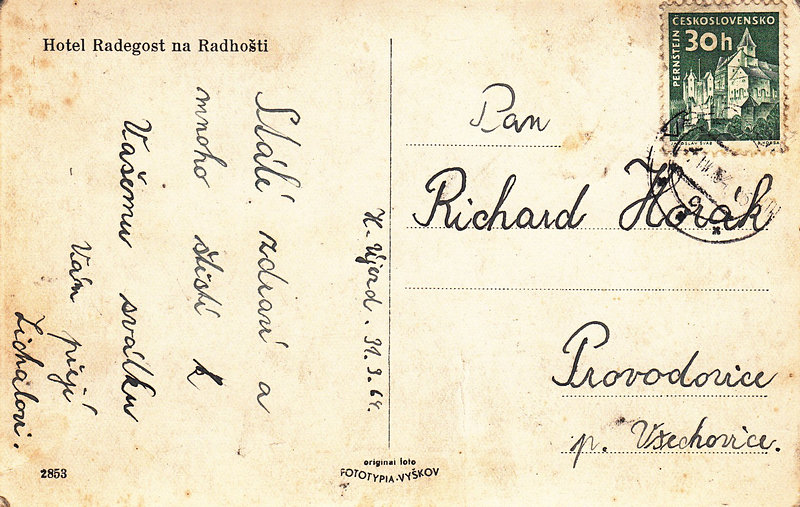 Hotel Radegost na Radhošti
H. Újezd. 31.3.64.
Stálé zdraví a
mnoho štěstí k
Vašemu svátku
Vám přejí
Zichalovi.
2853
original foto
FOTOTYPIA-VYŠKOV
ČESKOSLOVENSKO
30h
PERNŠTEJN
Pan
Richard Horák
Provodovice
p. Všechovice.